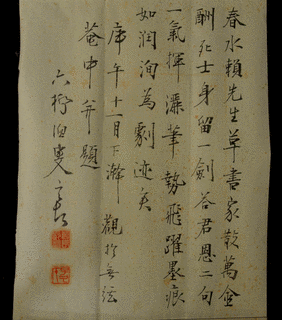 春水賴先生草書家散萬金
酬死士身留一劍答君恩二句
一氣揮灑筆勢飛躍墨痕
如潤洵為劇迹矣
庚午十一月下澣觀於無絃
菴中并題
六橋